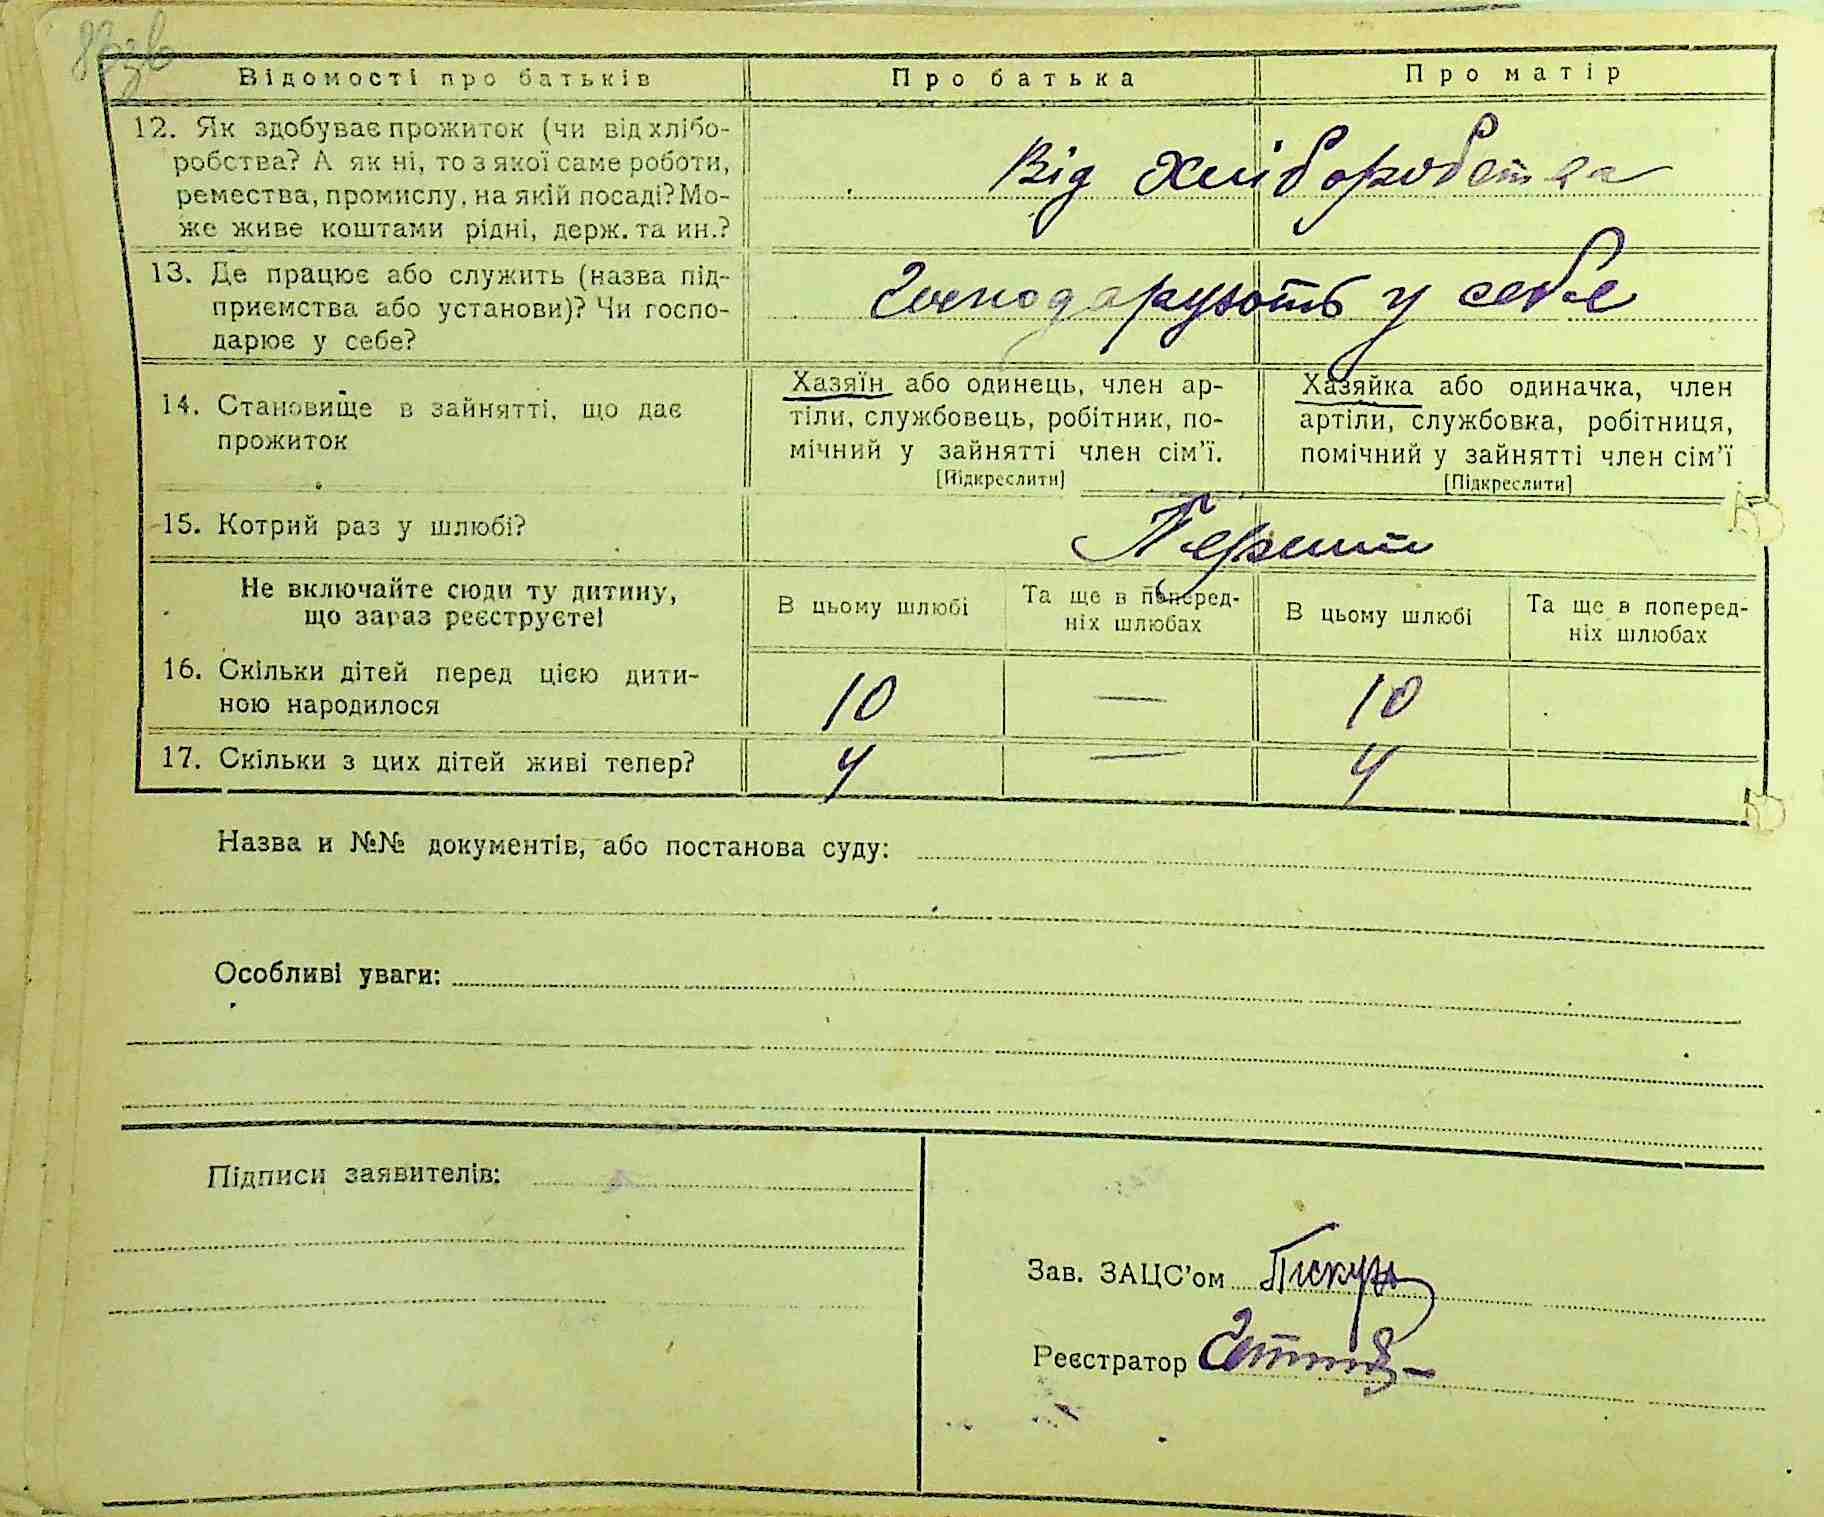 Відомості про батьків Про батька Про матір
12. Як здобуває прожиток (чи від хлібо-
робства? А як ні, то з якої саме роботи,
ремества, промислу, на якій посаді? Мо-
же живе коштами рідні, держ. та ин.?
Від хліборобства
13. Де працює або служить (назва під-
приємства або установи)? Чи госпо-
дарює у себе?
Господарують у себе
14. Становище в зайнятті, що дає
прожиток
Хазяїн або одинець, член ар-
тіли, службовець, робітник, по-
мічний у зайнятті член сім'ї.
[Підкреслити]
Хазяйка або одиначка, член
артіли, службовка, робітниця,
помічний у зайнятті член сім'ї
[Підкреслити]
15. Котрий раз у шлюбі?
Не включайте сюди ту дитину,
що зараз реєструєте!
В цьому шлюбі
Та ще в поперед-
ніх шлюбах
В цьому шлюбі
Та ще в поперед-
ніх шлюбах
16. Скільки дітей перед цією дити-
ною народилося
10 — 10
17. Скільки з цих дітей живі тепер?
4 — 4
Назва и №№ документів, або постанова суду:
Особливі уваги:
Підписи заявителів:
Зав. ЗАЦС'ом Пискун
Реєстратор